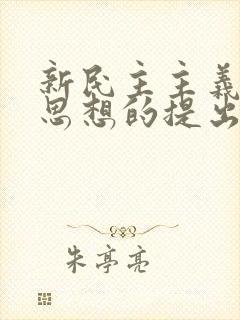 新民主主义
思想的提出
朱亭亮